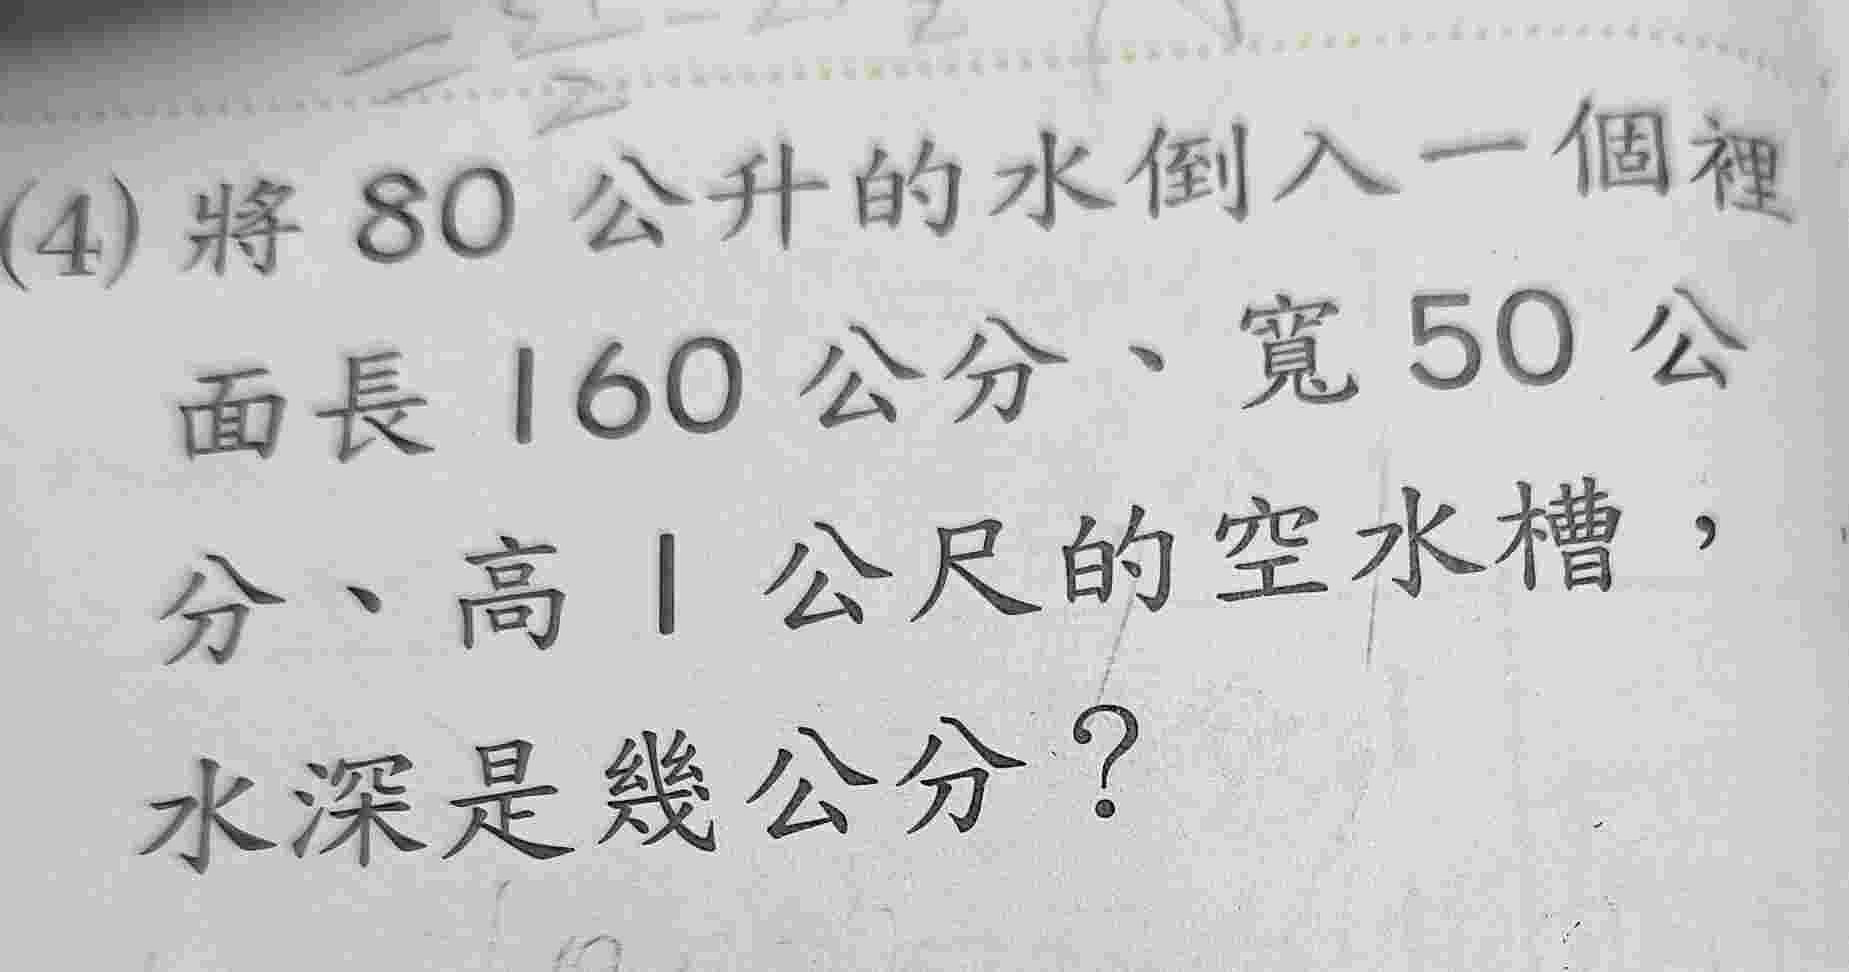 (4) 將 80 公升的水倒入一個裡
面長 160 公分、寬 50 公
分、高 1 公尺的空水槽，
水深是幾公分？